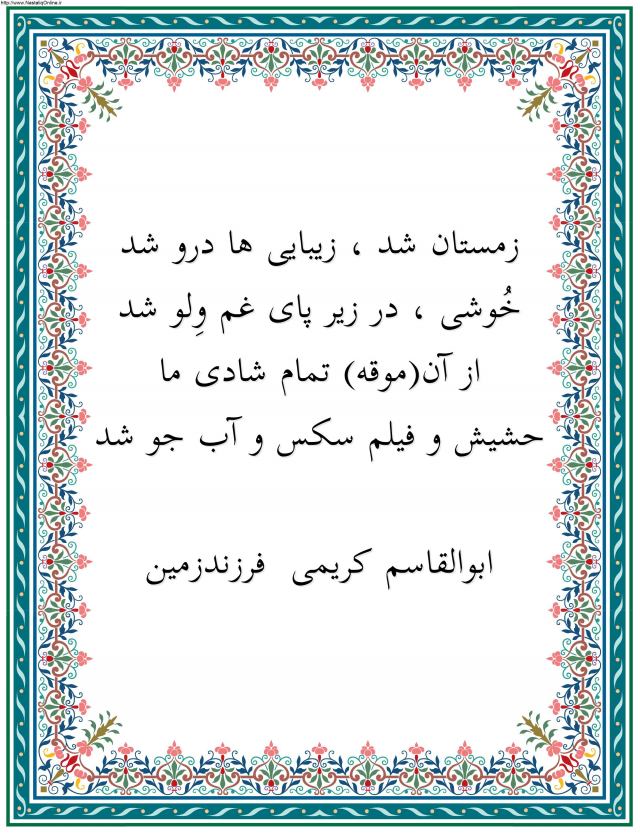 http://www.NastaliqOnline.ir
زمستان شد ، زیبایی ها درو شد
خُوشی ، در زیر پای غم وِلو شد
از آن(موقه) تمام شادی ما
حشیش و فیلم سکس و آب جو شد
ابوالقاسم کریمی فرزندزمین